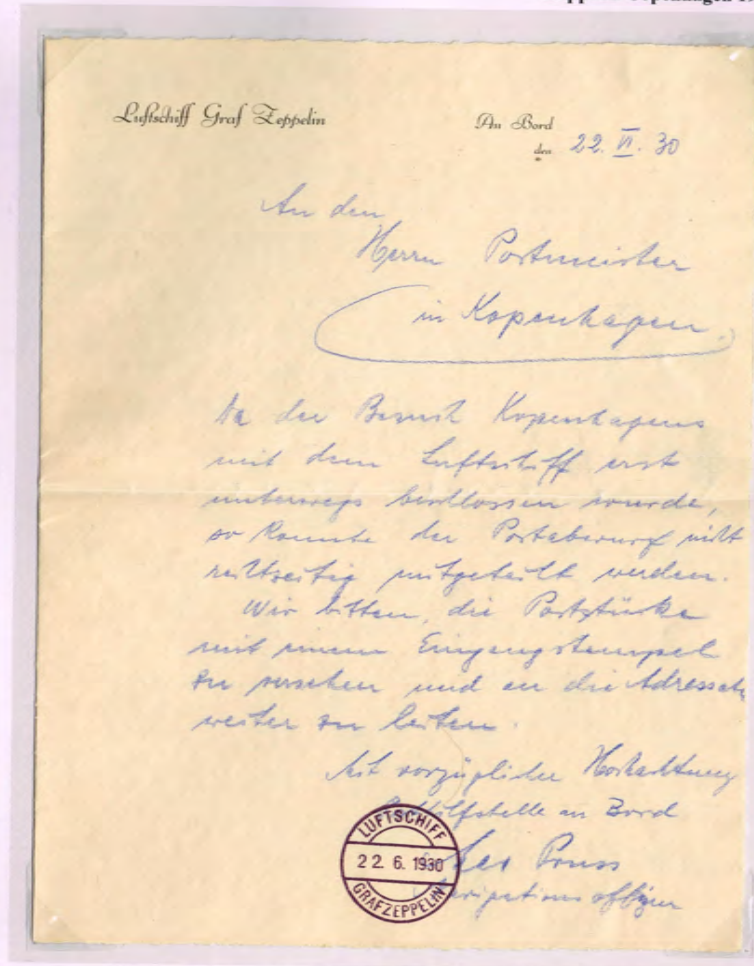 Luftschiff Graf Zeppelin
An Bord
den 22. VI. 30
An den
Herrn Postmeister
in Kopenhagen.
Da der Besuch Kopenhagens
mit dem Luftschiff erst
unterwegs beschlossen wurde,
so konnte der Postabwurf nicht
rechtzeitig mitgeteilt werden.
Wir bitten, die Poststücke
mit einem Eingangstempel
zu versehen und an die Adressate
weiter zu leiten.
Mit vorzüglicher Hochachtung
an Bord
Pruss
Navigationsoffizier
LUFTSCHIFF
22. 6. 1930
GRAF ZEPPELIN